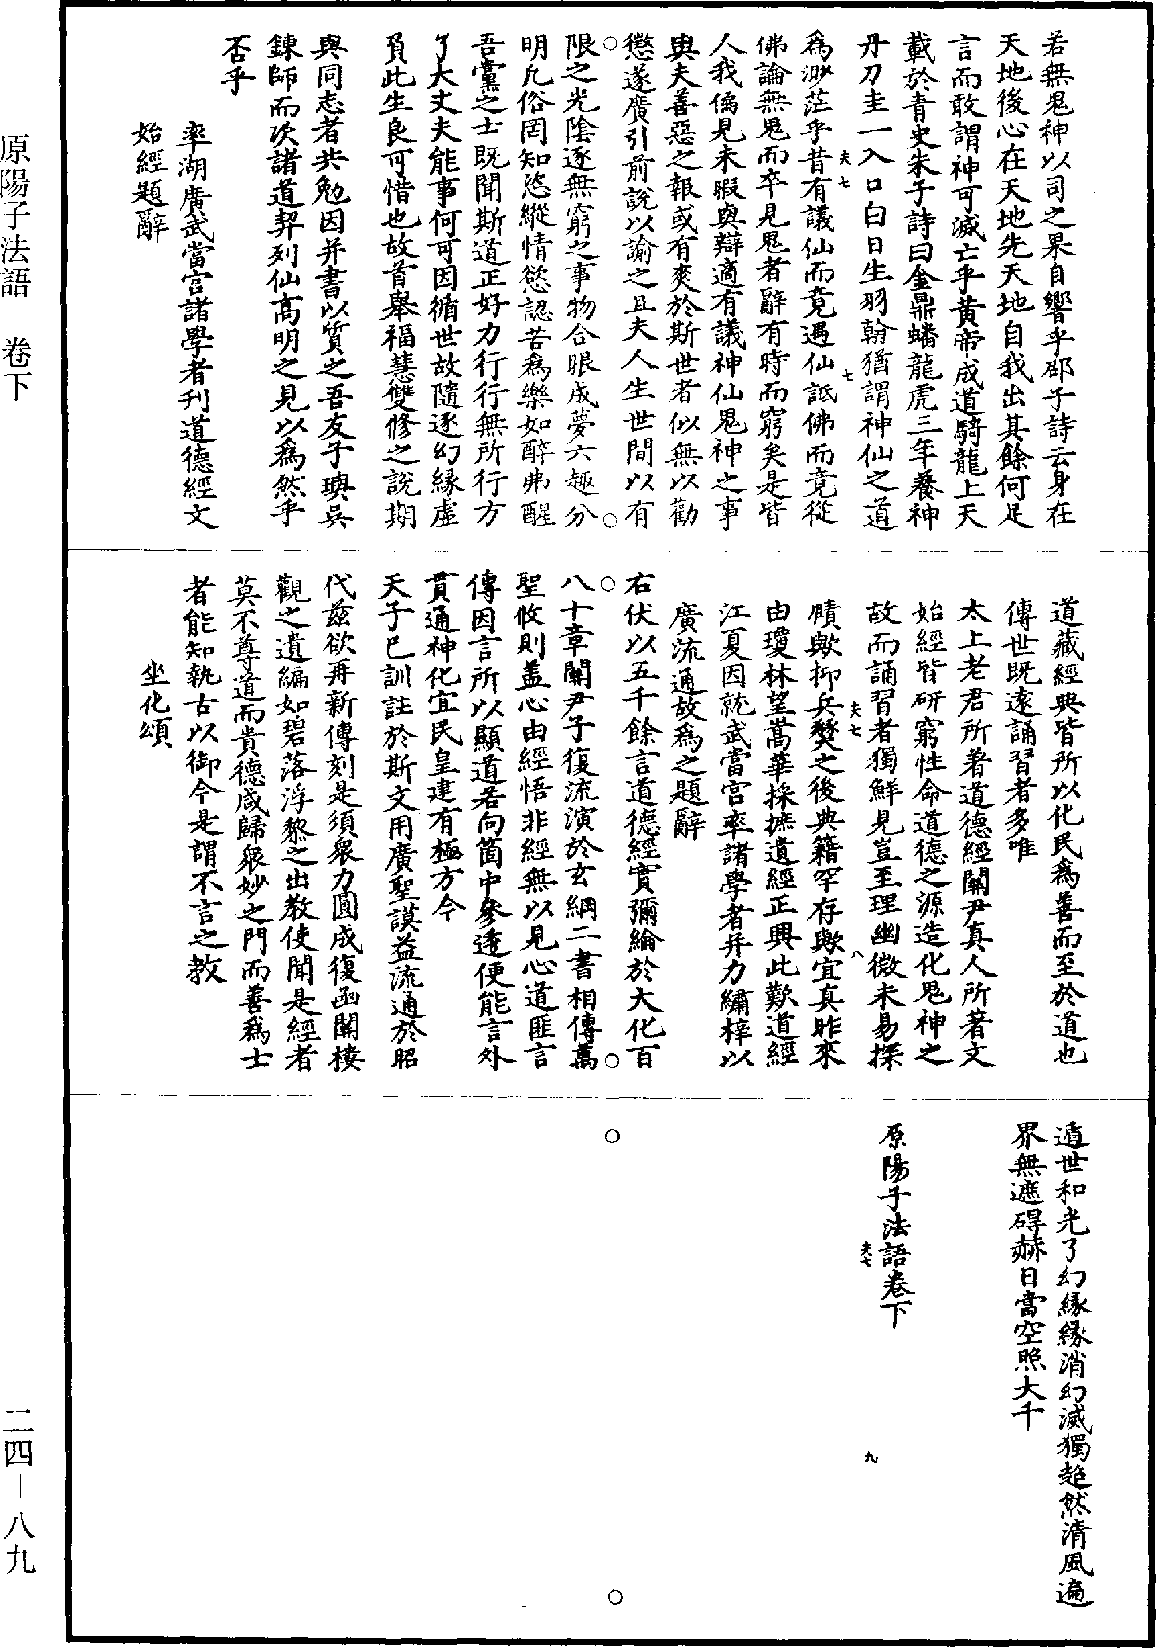 若無鬼神以司之果自響乎邵子詩云身在
天地後心在天地先天地自我出其餘何足
言而敢謂神可滅亡乎黃帝成道騎龍上天
載於青史朱子詩曰金鼎蟠龍虎三年養神
丹刀圭一入口白日生羽翰猶謂神仙之道
為渺茫乎昔有議仙而竟遇仙詆佛而竟從
佛論無鬼而卒見鬼者辭有時而窮矣是皆
人我偽見未暇與辯適有議神仙鬼神之事
與夫善惡之報或有爽於斯世者似無以勸
懲遂廣引前說以諭之且夫人生世間以有
限之光陰逐無窮之事物合眼成夢六趣分
明凡俗罔知恣縱情慾認苦為樂如醉弗醒
吾黨之士既聞斯道正好力行行無所行方
了大丈夫能事何可因循世故隨逐幻緣虛
負此生良可惜也故首舉福慧雙修之說期
與同志者共勉因并書以質之吾友子璵吳
鍊師而次諸道契列仙高明之見以為然乎
否乎
率湖廣武當宮諸學者刊道德經文
始經題辭
道藏經典皆所以化民為善而至於道也
傳世既遠誦習者多唯
太上老君所著道德經關尹真人所著文
始經皆研窮性命道德之源造化鬼神之
故而誦習者獨鮮見豈至理幽微未易探
賾歟抑兵燹之後典籍罕存歟宜真昨來
由瓊林望嵩華採摭遺經正興此歎道經
江夏因就武當宮率諸學者并力繡梓以
廣流通故為之題辭
右伏以五千餘言道德經實彌綸於大化百
八十章關尹子復流演於玄綱二書相傳萬
聖攸則盖心由經悟非經無以見心道匪言
傳因言所以顯道若向箇中參透便能言外
貫通神化宜民皇建有極方今
天子已訓註於斯文用廣聖謨益流通於昭
代茲欲再新傳刻是須衆力圓成復函關棲
觀之遺編如碧落浮黎之出教使聞是經者
莫不尊道而貴德咸歸衆妙之門而善為士
者能知執古以御今是謂不言之教
坐化頌
遁世和光了幻緣緣消幻滅獨超然清風遍
界無遮碍赫日當空照大千
原陽子法語卷下
夫七
七
夫七
八
夫七
九
原陽子法語 卷下
二四—八九